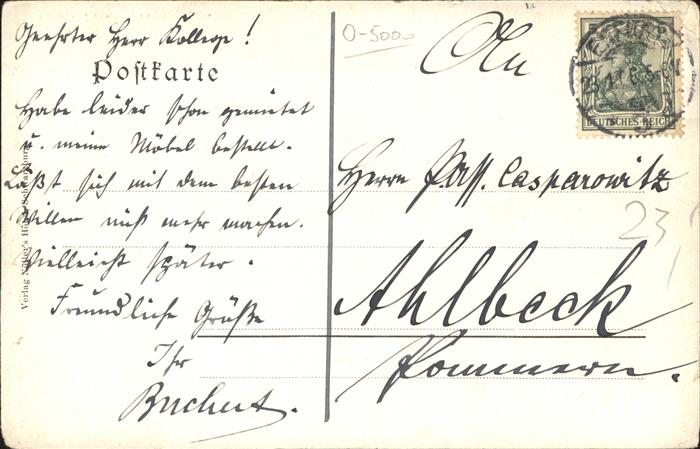 Geehrter Herr Kollege!
Postkarte
Habe leider schon gemietet
u. meine Möbel bestellt.
Läßt sich mit dem besten
Willen nicht mehr machen.
Vielleicht später.
Freundliche Grüße
Ihr
O-5000
An
DEUTSCHES REICH
Herrn Pass. Casparowitz
23
Ahlbeck
Pommern.
Verlag